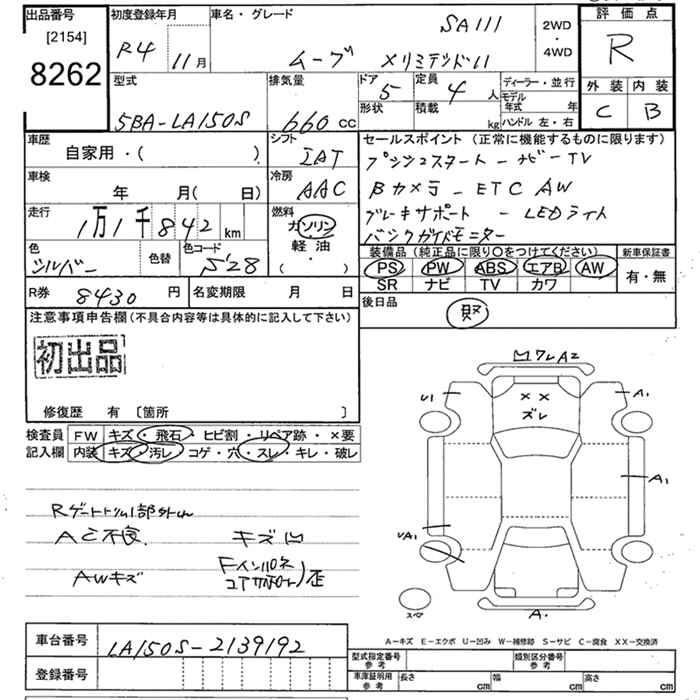 出品番号
[2154]
8262
初度登録年月
R4 11月
車名・グレード
SA III
ムーブ XリミテッドII
2WD
・
4WD
評価点
R
外装 内装
C B
型式
5BA-LA150S
排気量
660 cc
ドア 5
形状
定員 4 人
積載 kg
ディーラー・並行
モデル
年式 年
ハンドル 左・右
車歴
自家用・( )
シフト
IAT
車検
年 月( 日)
冷房
AAC
走行
1万1千842 km
燃料
ガソリン
軽油
( ・ )
色
シルバー
色替
色コード
S28
R券 8430 円
名変期限 月 日
セールスポイント (正常に機能するものに限ります)
プッシュスタート - ナビ - TV
Bカメラ - ETC AW
ブレーキサポート - LEDライト
パノラマガイドモニター
装備品 (純正品に限り○をつけてください)
PS PW ABS エアB AW
SR ナビ TV カワ
新車保証書
有・無
後日品
注意事項申告欄(不具合内容等は具体的に記入して下さい)
初出品
修復歴 有 [箇所 ]
検査員
記入欄
FW キズ・飛石・ヒビ割・リペア跡・×要
内装 キズ・汚レ・コゲ・穴・スレ・キレ・破レ
Rゲートトリム1部外れ
AC不良 キズ凹
AWキズ
歪
ワレA2
U1
A1
××
ズレ
A1
UA1
スペア
A1
A-キズ E-エクボ U-凹み W-補修跡 S-サビ C-腐食 XX-交換済
車台番号
LA150S-2139192
登録番号
型式指定番号
参考
類別区分番号
参考
車庫証明用
参考
長さ cm 幅 cm 高さ cm